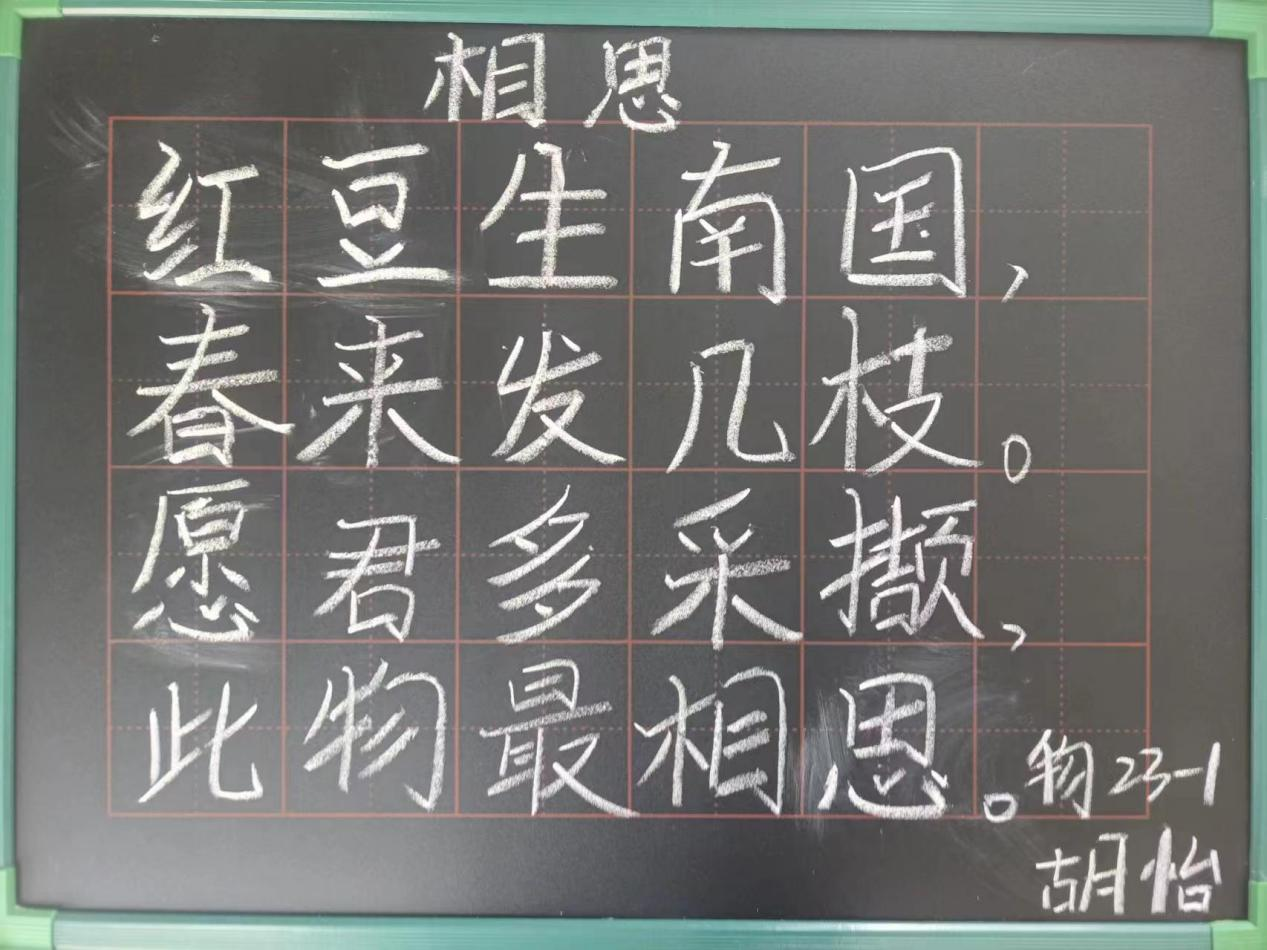 相思
红豆生南国，
春来发几枝。
愿君多采撷，
此物最相思。
物23-1
胡怡